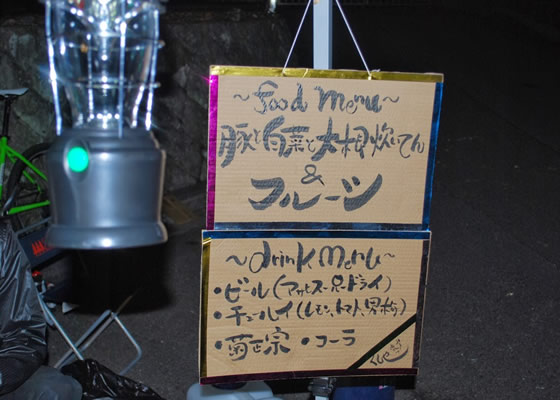 ~food menu~
豚と白菜と大根炊いてん
&
フルーツ
~drink menu~
・ビール(アサヒスーパードライ)
・チューハイ(レモン、トマト、男梅)
・菊正宗 ・コーラ